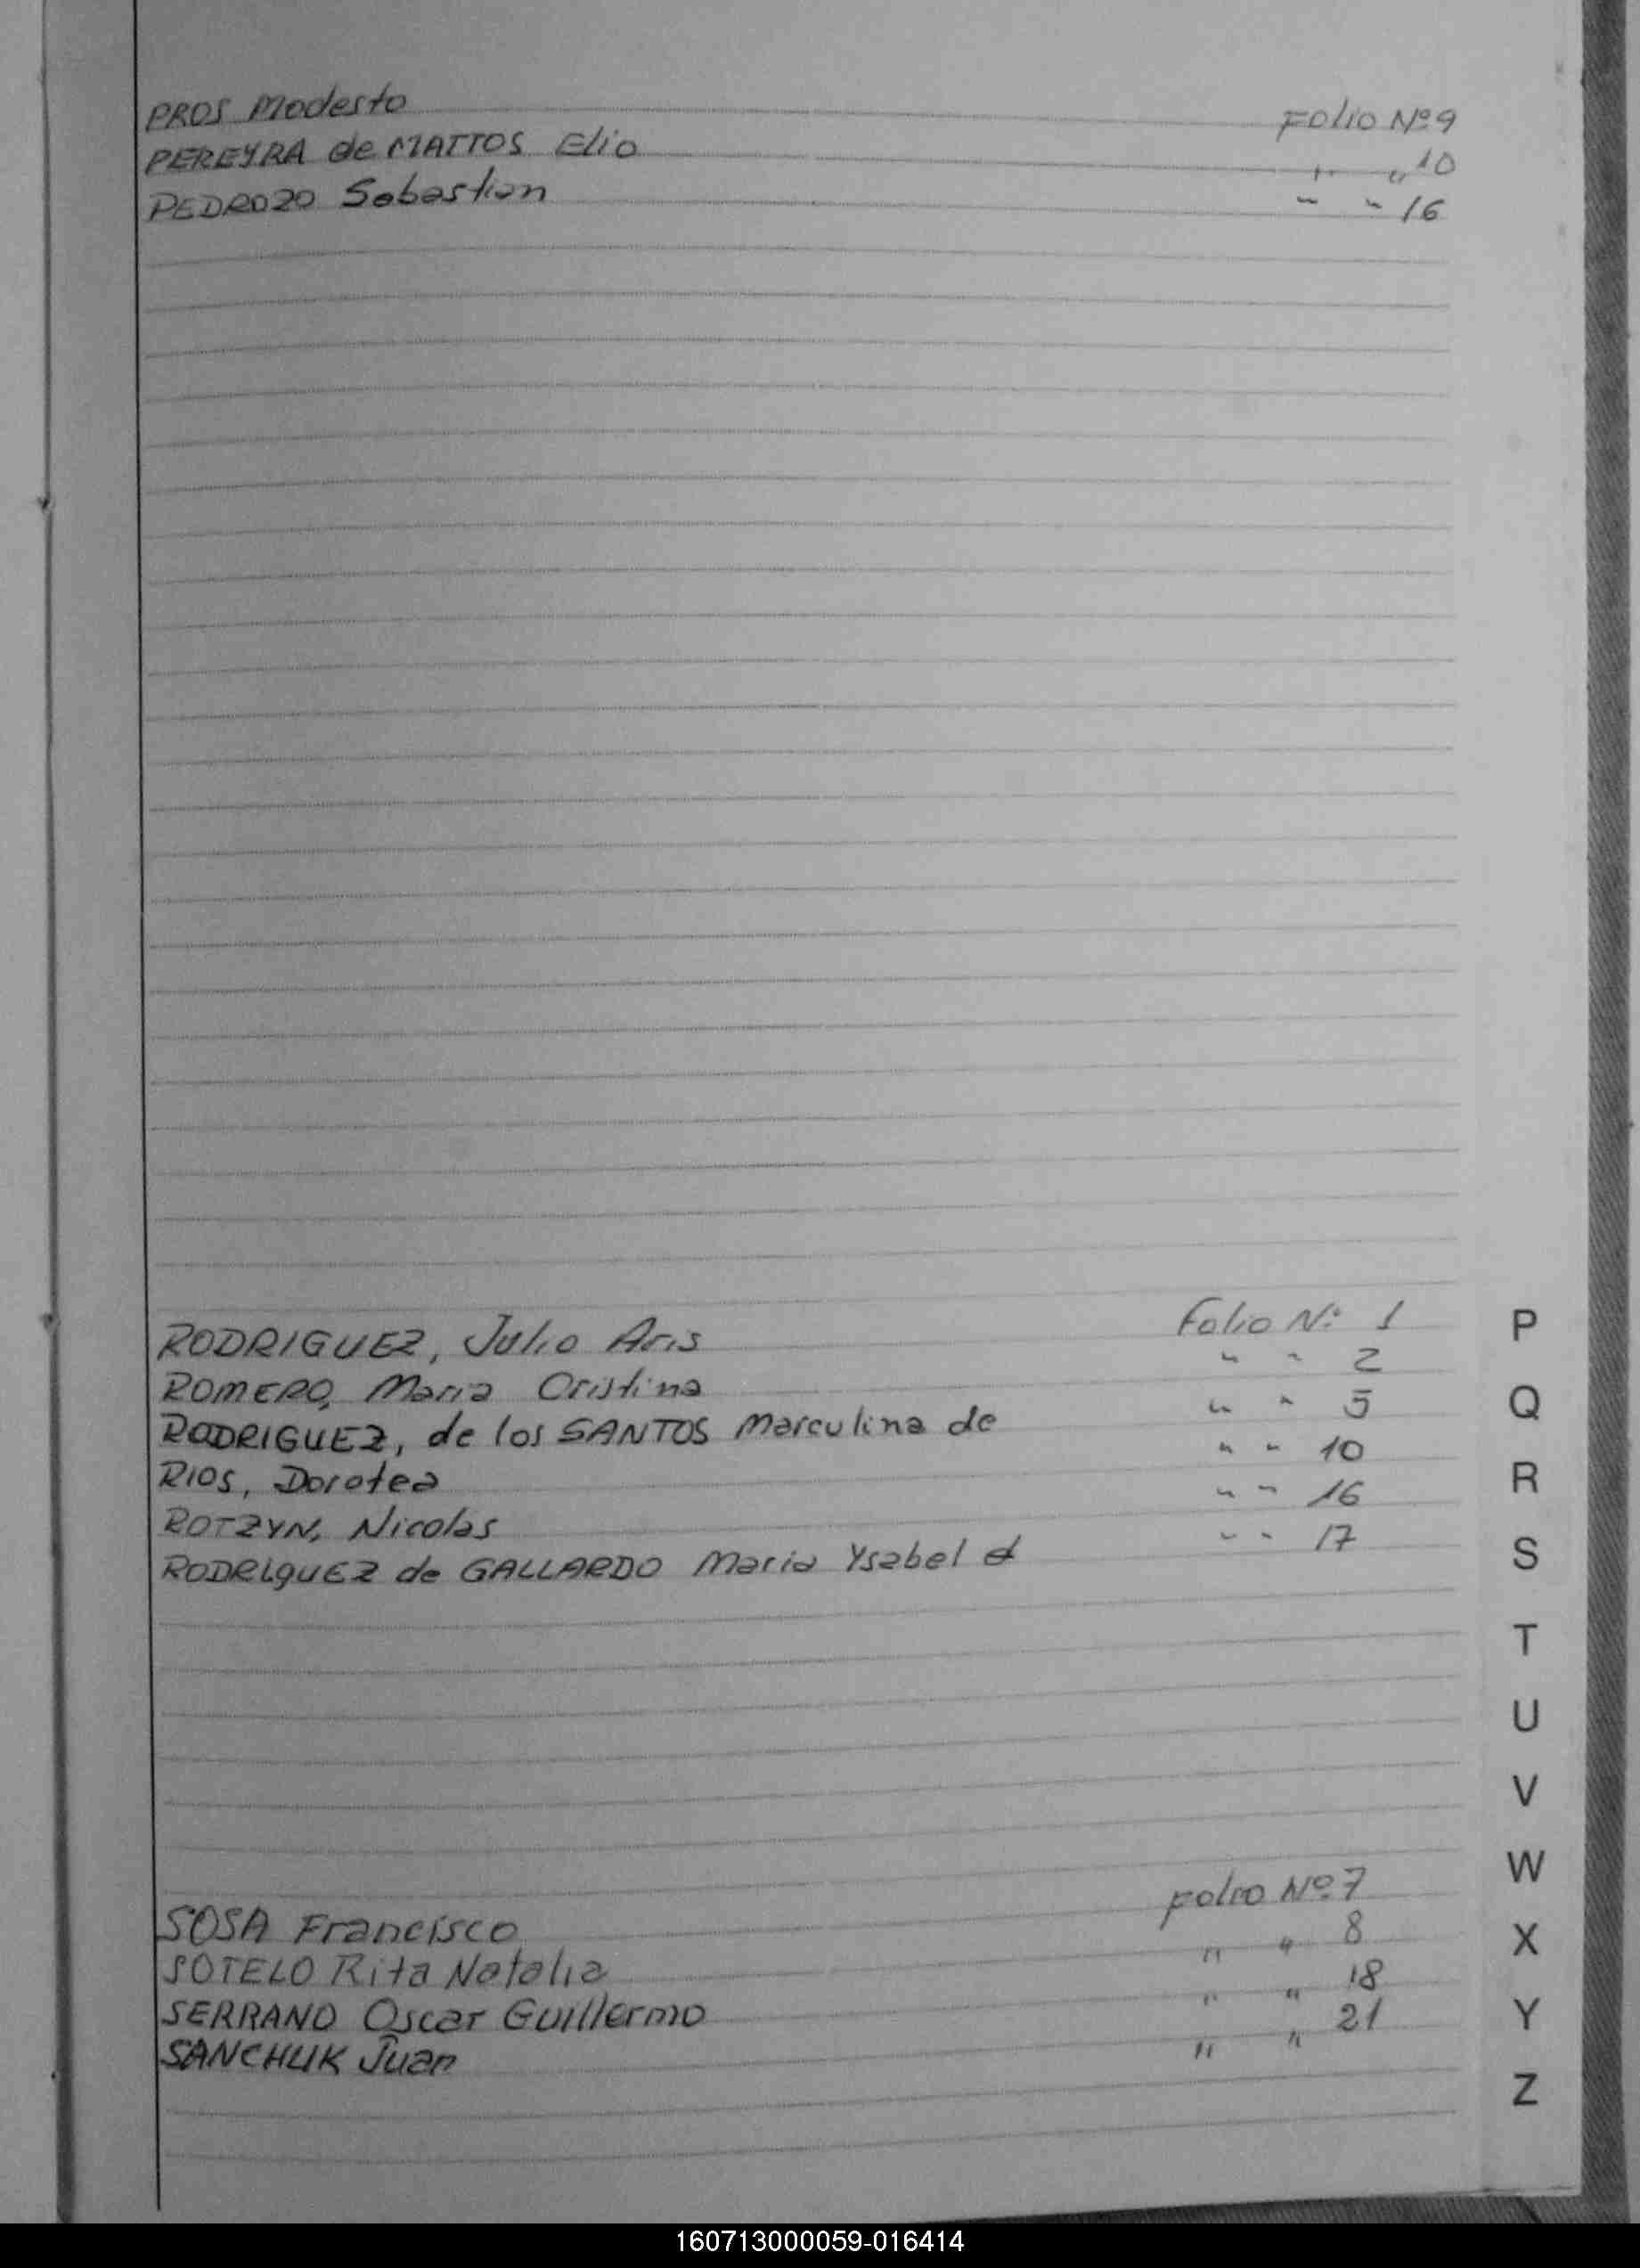 PROS Modesto Folio Nº 9
PEREYRA de MATTOS Elio " " 10
PEDROZO Sebastian " " 16
RODRIGUEZ, Julio Aris Folio Nº 1
ROMERO, Maria Cristina " " 2
RODRIGUEZ, de los SANTOS Marculina de " " 5
RIOS, Dorotea " " 10
ROTZYN, Nicolas " " 16
RODRIGUEZ de GALLARDO Maria Ysabel " " 17
SOSA Francisco Folio Nº 7
SOTELO Rita Natalia " " 8
SERRANO Oscar Guillermo " " 18
SANCHUK Juan " " 21
P
Q
R
S
T
U
V
W
X
Y
Z
160713000059-016414